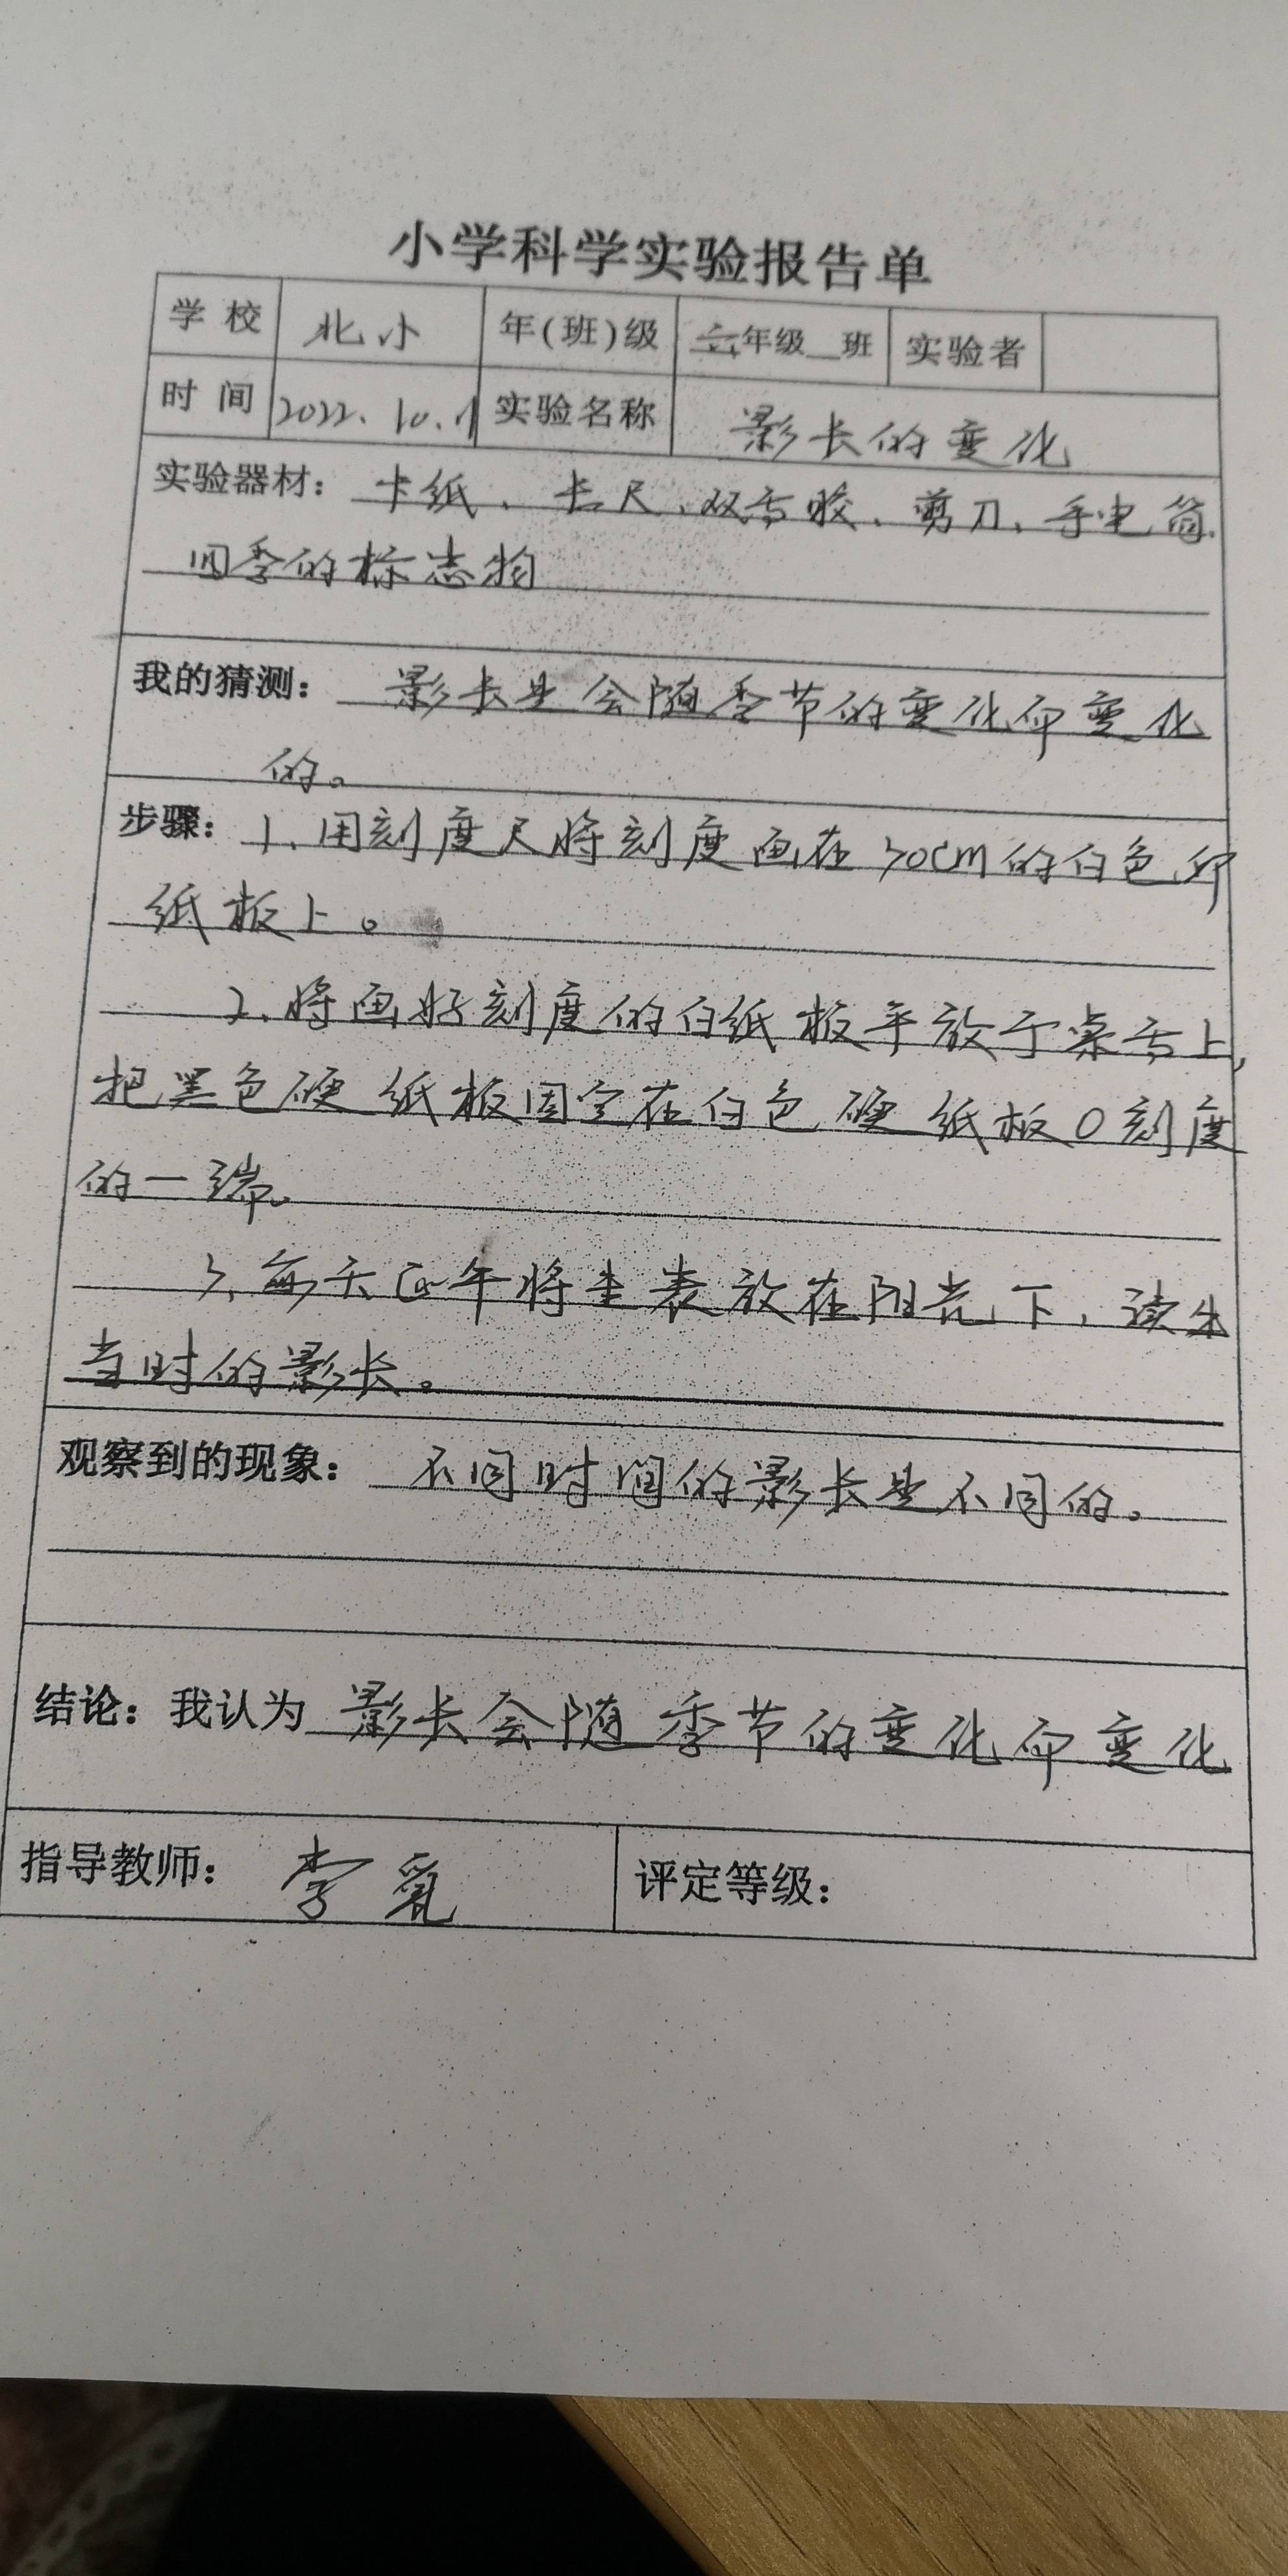 小学科学实验报告单
学校 北小 年(班)级 六年级 班 实验者
时间 2022.10.11 实验名称 影长的变化
实验器材： 卡纸、长尺、双面胶、剪刀、手电筒、
四季的标志物
我的猜测： 影长是会随季节的变化而变化
的。
步骤： 1.用刻度尺将刻度画在 30cm的白色
纸板上。
2.将画好刻度的白纸板平放于桌面上,
把黑色硬纸板固定在白色硬纸板0刻度
的一端。
3.每天正午将圭表放在阳光下,读出
当时的影长。
观察到的现象： 不同时间的影长是不同的。
结论：我认为 影长会随季节的变化而变化
指导教师： 李 评定等级：